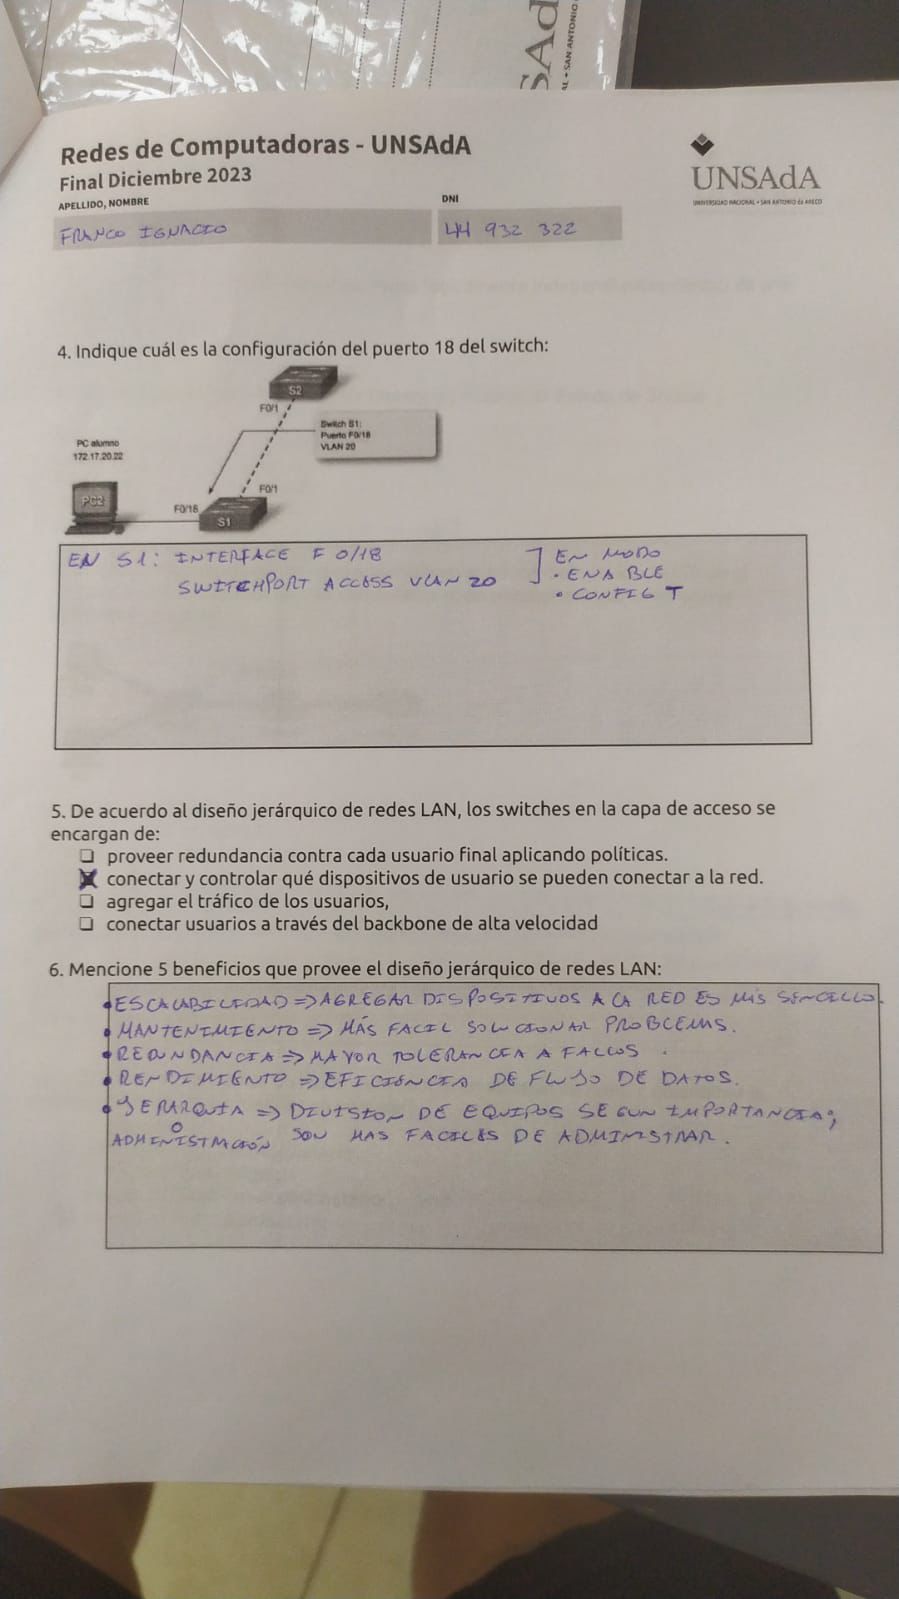 SAd
AL • SAN ANTONIO
Redes de Computadoras - UNSAdA
Final Diciembre 2023
APELLIDO, NOMBRE
DNI
FRANCO IGNACIO
44 932 322
UNSAdA
UNIVERSIDAD NACIONAL • SAN ANTONIO de ARECO
4. Indique cuál es la configuración del puerto 18 del switch:
S2
F0/1
Switch S1:
Puerto F0/18
VLAN 20
PC alumno
172.17.20.22
PC2
F0/18
F0/1
S1
EN S1: INTERFACE F 0/18
SWITCHPORT ACCESS VLAN 20
] EN MODO
• ENABLE
• CONFIG T
5. De acuerdo al diseño jerárquico de redes LAN, los switches en la capa de acceso se
encargan de:
❑ proveer redundancia contra cada usuario final aplicando políticas.
☒ conectar y controlar qué dispositivos de usuario se pueden conectar a la red.
❑ agregar el tráfico de los usuarios,
❑ conectar usuarios a través del backbone de alta velocidad
6. Mencione 5 beneficios que provee el diseño jerárquico de redes LAN:
• ESCALABILIDAD => AGREGAR DISPOSITIVOS A LA RED ES MÁS SENCILLO.
• MANTENIMIENTO => MÁS FACIL SOLUCIONAR PROBLEMAS.
• REDUNDANCIA => MAYOR TOLERANCIA A FALLOS.
• RENDIMIENTO => EFICIENCIA DE FLUJO DE DATOS.
• JERARQUIA => DIVISION DE EQUIPOS SEGUN IMPORTANCIA;
O
ADMINISTRACIÓN SON MAS FACILES DE ADMINISTRAR.